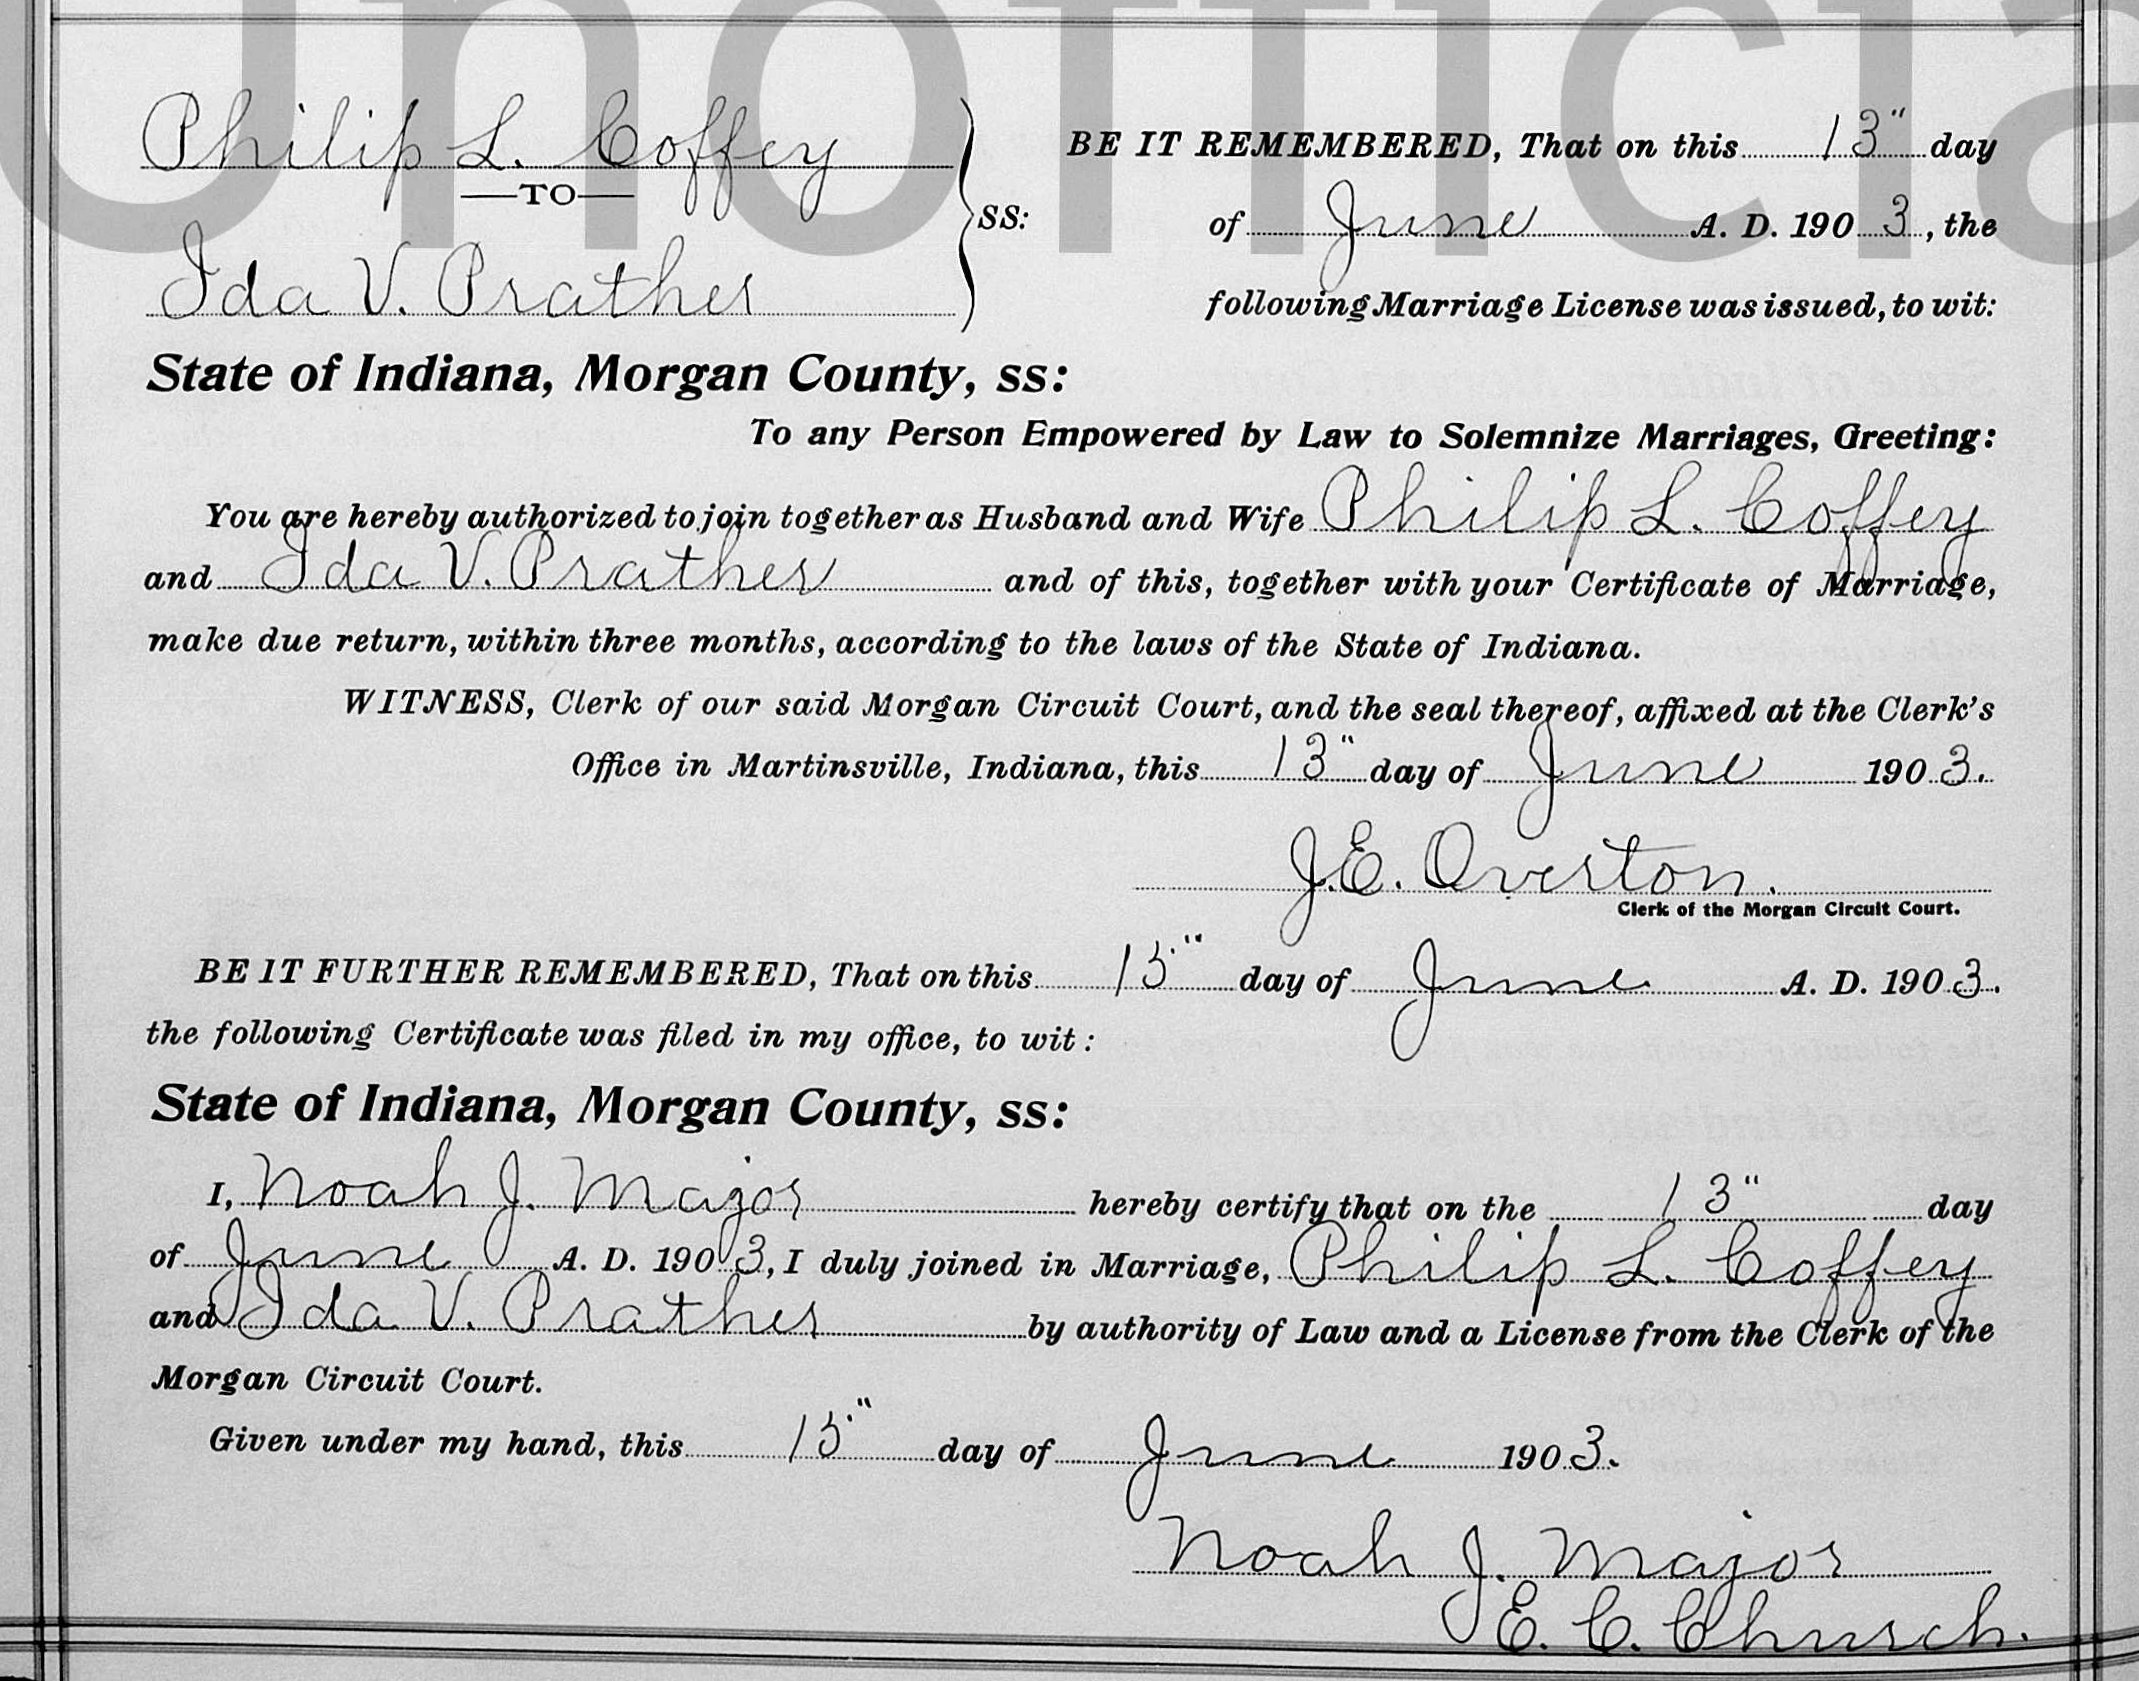 Unofficia
Philip L. Coffey
—TO—
Ida V. Prather
SS:
BE IT REMEMBERED, That on this 13" day
of June A. D. 1903, the
following Marriage License was issued, to wit:
State of Indiana, Morgan County, ss:
To any Person Empowered by Law to Solemnize Marriages, Greeting:
You are hereby authorized to join together as Husband and Wife Philip L. Coffey
and Ida V. Prather and of this, together with your Certificate of Marriage,
make due return, within three months, according to the laws of the State of Indiana.
WITNESS, Clerk of our said Morgan Circuit Court, and the seal thereof, affixed at the Clerk's
Office in Martinsville, Indiana, this 13" day of June 1903.
J.E. Overton.
Clerk of the Morgan Circuit Court.
BE IT FURTHER REMEMBERED, That on this 15" day of June A. D. 1903.
the following Certificate was filed in my office, to wit:
State of Indiana, Morgan County, ss:
I, Noah J. Major hereby certify that on the 13" day
of June A. D. 1903, I duly joined in Marriage, Philip L. Coffey
and Ida V. Prather by authority of Law and a License from the Clerk of the
Morgan Circuit Court.
Given under my hand, this 15" day of June 1903.
Noah J. Major
E. C. Church.